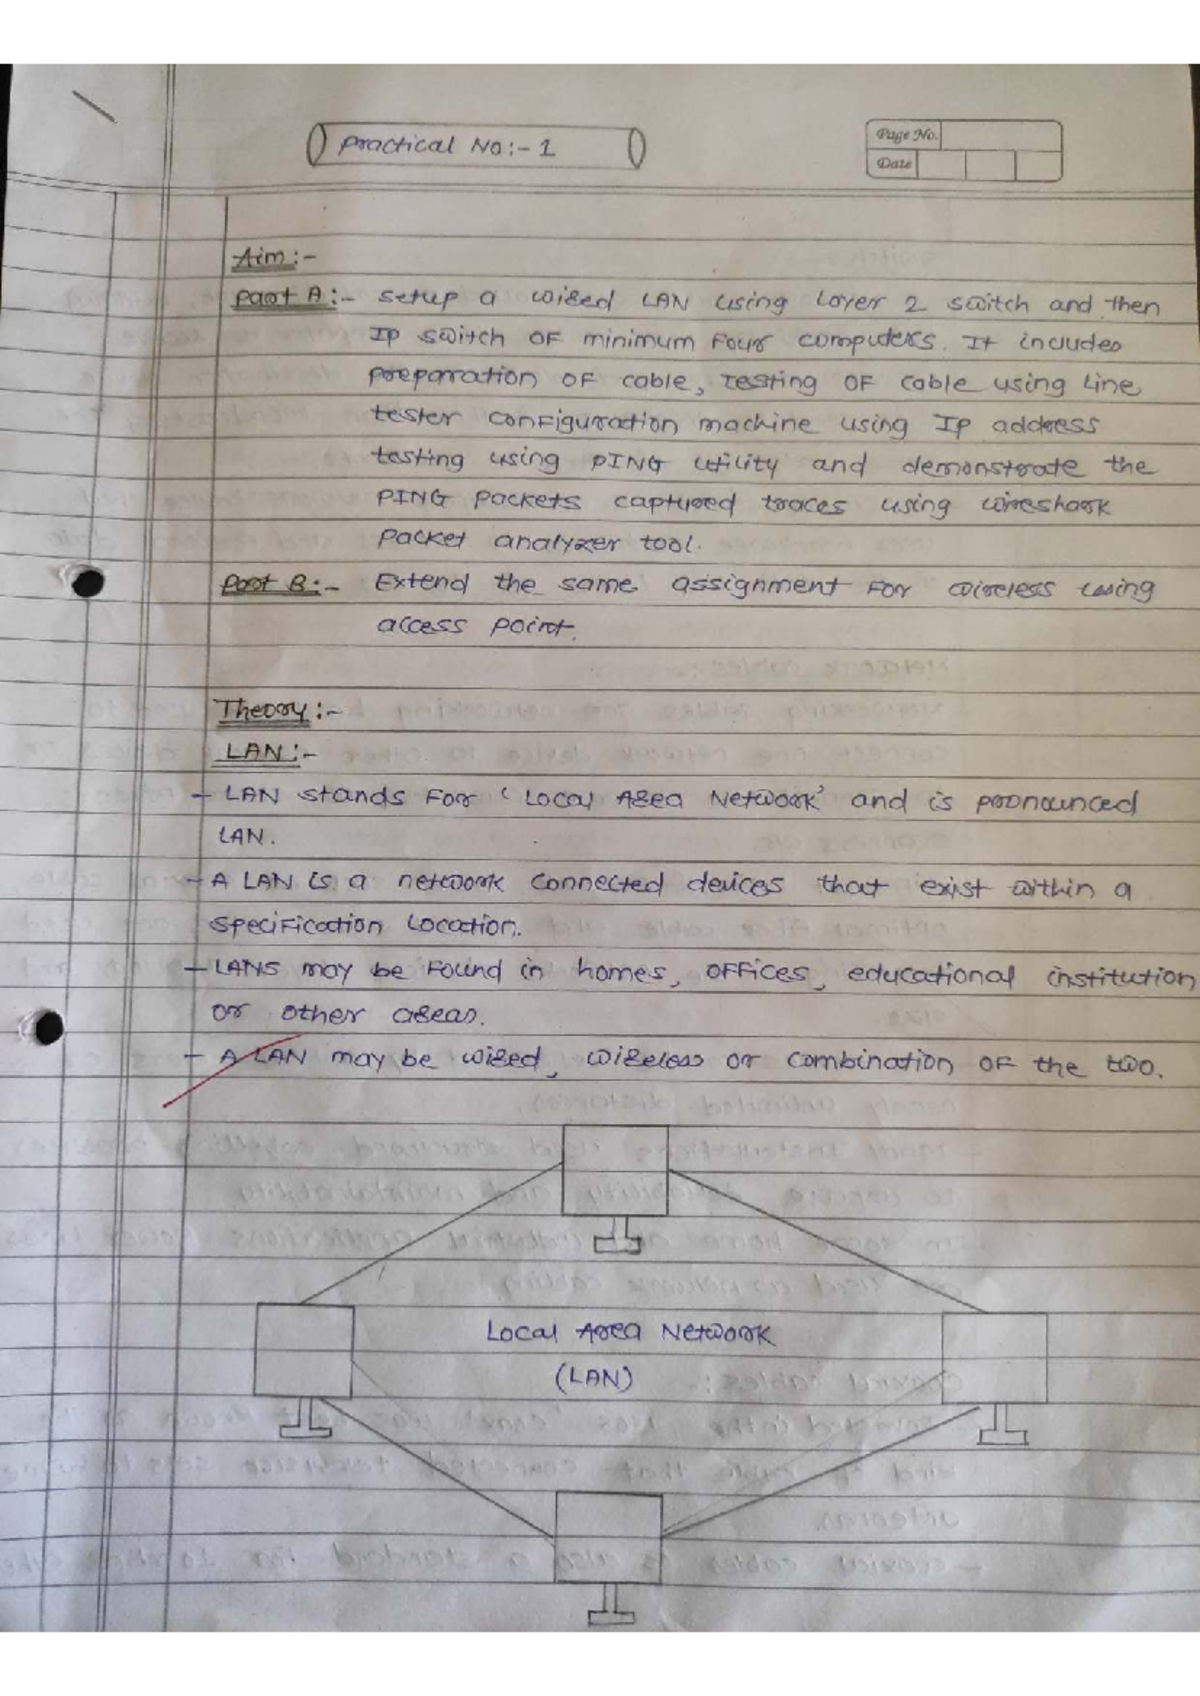 Practical No:- 1
Page No.
Date
Aim:-
Part A:- Setup a wired LAN using Layer 2 switch and then
IP switch of minimum four computers. It includes
preparation of cable, Testing of cable using Line
tester configuration machine using IP address
testing using PING utility and demonstrate the
PING packets captured traces using wireshark
packet analyzer tool.
Part B:- Extend the same assignment for wireless using
access point.
Theory:-
LAN:-
- LAN stands for 'Local Area Network' and is pronounced
LAN.
- A LAN is a network connected devices that exist within a
specification location.
- LANs may be found in homes, offices, educational institution
or other areas.
- A LAN may be wired, wireless or combination of the two.
Local Area Network
(LAN)